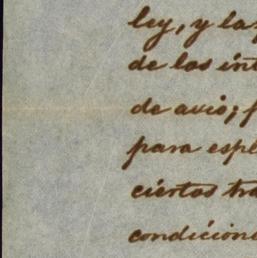 ley, y la
de los int
de avio; f
para espl
ciertos tra
condicione